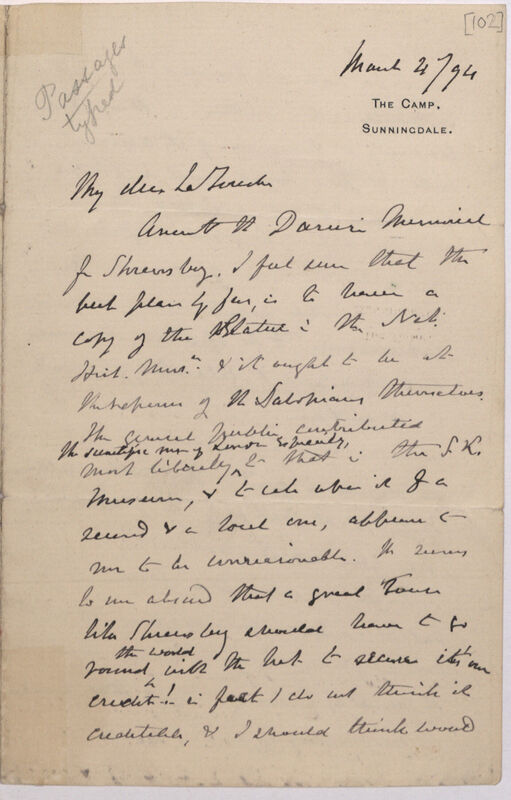 [102]
Passages
typed
March 2/94
THE CAMP,
SUNNINGDALE.
My dear La Touche
Anent the Darwin Memorial
for Shrewsbury. I feel sure that the
best plan by far, is to have a
copy of the Statue in the Nat.
Hist. Musm. & it ought to be at
the expense of the Salopians themselves.
The general public contributed
the scientific men of London especially,
most liberally to that in the S.K.
Museum, & to ask when it for a
second & a local one, appears to
me to be unreasonable. It seems
to me absurd that a great Town
like Shrewsbury should have to go
the world
round with the hat to secure its own
credit! in fact I do not think it
creditable, & I should think would